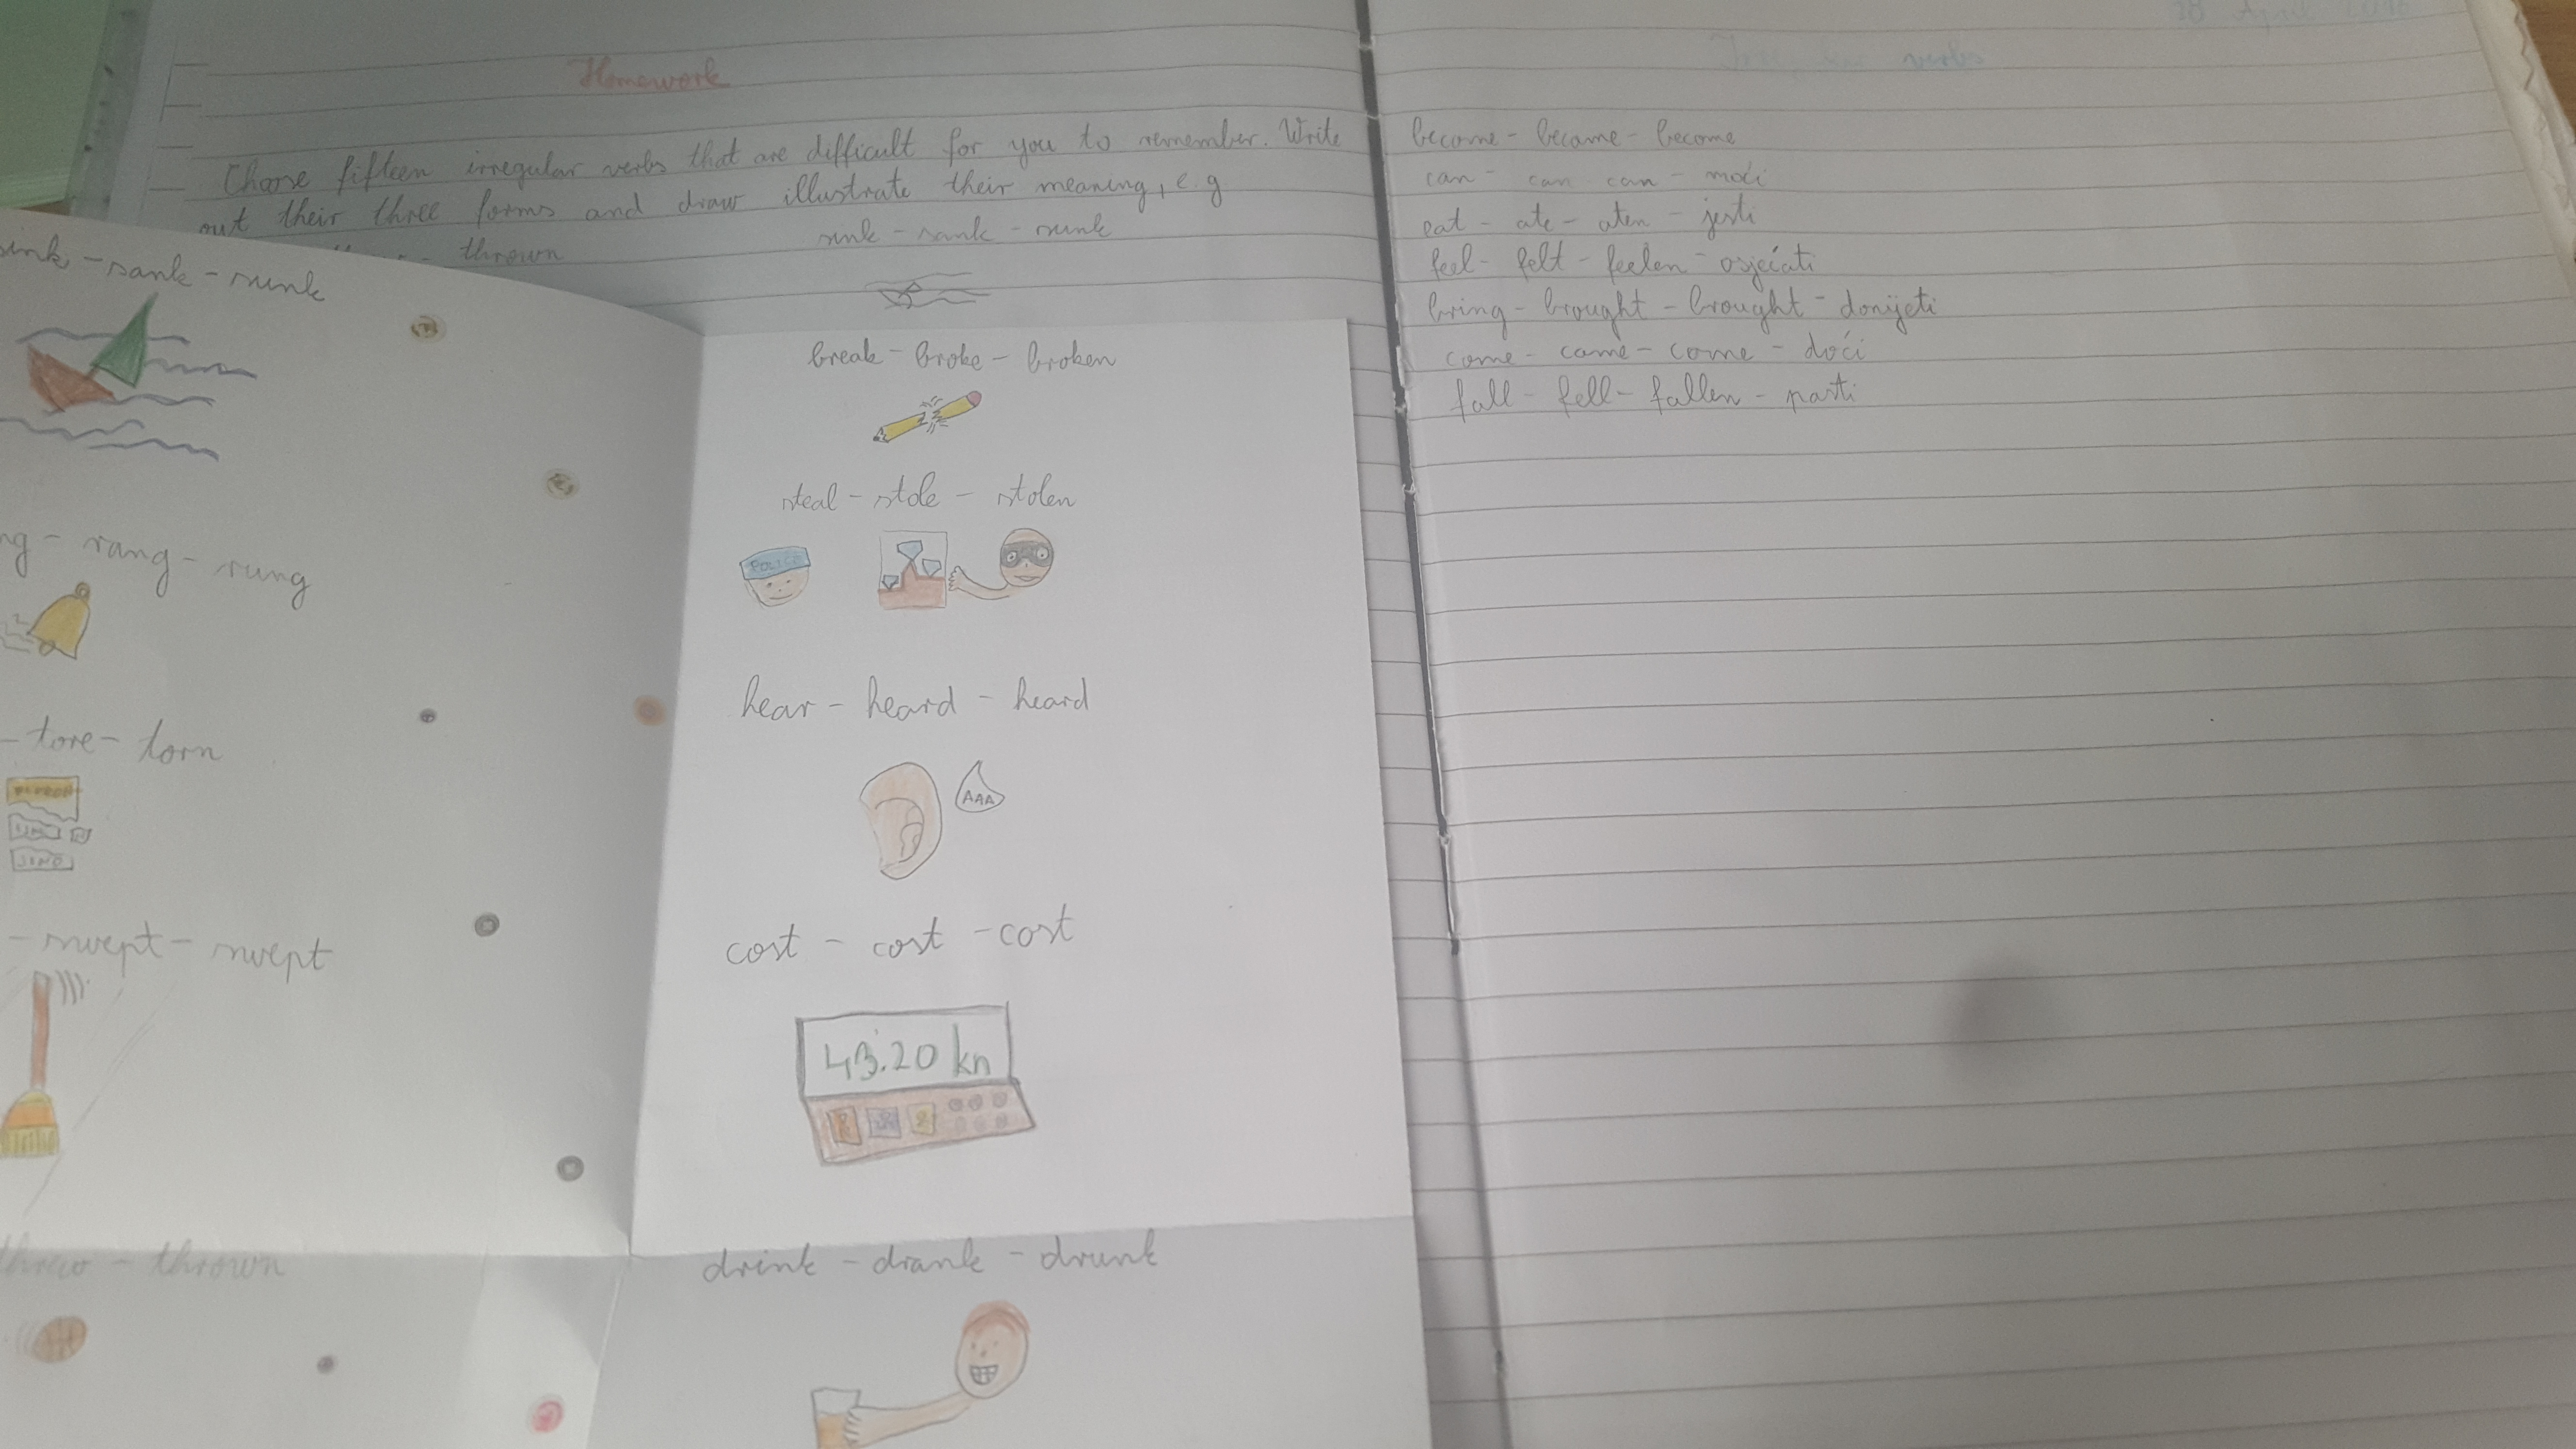 Homework
Choose fifteen irregular verbs that are difficult for you to remember. Write
out their three forms and draw illustrate their meaning, e.g
thrown
sink - sank - sunk
sink - sank - sunk
ng - rang - rung
- tore - torn
- swept - swept
threw - thrown
break - broke - broken
steal - stole - stolen
POLICE
hear - heard - heard
AAA
cost - cost - cost
43.20 kn
drink - drank - drunk
28 April
verbs
become - became - become
can - can can - moći
eat - ate - aten - jesti
feel - felt - feelen - osjećati
bring - brought - brought - donijeti
come - came - come - doći
fall - fell - fallen - pasti